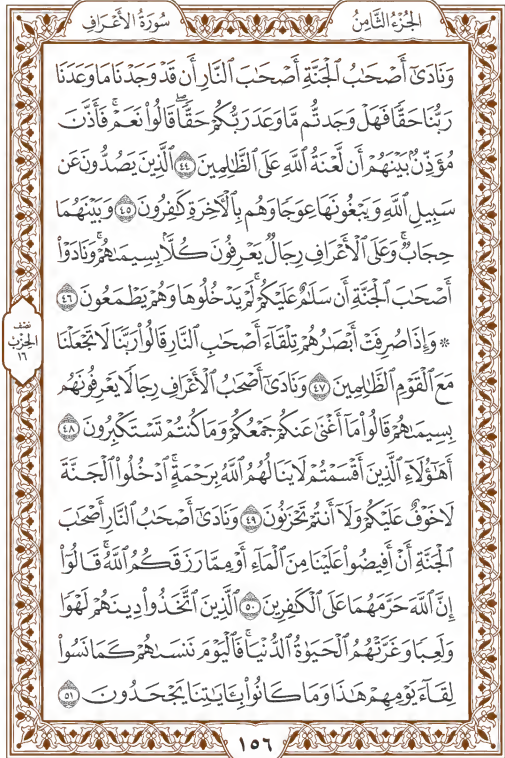 الجُزْءُ الثَّامِنُ
سُورَةُ الأَعْرَافِ
وَنَادَىٰٓ أَصْحَٰبُ ٱلْجَنَّةِ أَصْحَٰبَ ٱلنَّارِ أَن قَدْ وَجَدْنَا مَا وَعَدَنَا
رَبُّنَا حَقًّا فَهَلْ وَجَدتُّم مَّا وَعَدَ رَبُّكُمْ حَقًّا ۖ قَالُوا۟ نَعَمْ ۚ فَأَذَّنَ
مُؤَذِّنٌۢ بَيْنَهُمْ أَن لَّعْنَةُ ٱللَّهِ عَلَى ٱلظَّٰلِمِينَ ٤٤ ٱلَّذِينَ يَصُدُّونَ عَن
سَبِيلِ ٱللَّهِ وَيَبْغُونَهَا عِوَجًا وَهُم بِٱلْءَاخِرَةِ كَٰفِرُونَ ٤٥ وَبَيْنَهُمَا
حِجَابٌ ۚ وَعَلَى ٱلْأَعْرَافِ رِجَالٌ يَعْرِفُونَ كُلًّۢا بِسِيمَىٰهُمْ ۚ وَنَادَوْا۟
أَصْحَٰبَ ٱلْجَنَّةِ أَن سَلَٰمٌ عَلَيْكُمْ ۚ لَمْ يَدْخُلُوهَا وَهُمْ يَطْمَعُونَ ٤٦
* وَإِذَا صُرِفَتْ أَبْصَٰرُهُمْ تِلْقَآءَ أَصْحَٰبِ ٱلنَّارِ قَالُوا۟ رَبَّنَا لَا تَجْعَلْنَا
مَعَ ٱلْقَوْمِ ٱلظَّٰلِمِينَ ٤٧ وَنَادَىٰٓ أَصْحَٰبُ ٱلْأَعْرَافِ رِجَالًا يَعْرِفُونَهُم
بِسِيمَىٰهُمْ قَالُوا۟ مَآ أَغْنَىٰ عَنكُمْ جَمْعُكُمْ وَمَا كُنتُمْ تَسْتَكْبِرُونَ ٤٨
أَهَٰٓؤُلَآءِ ٱلَّذِينَ أَقْسَمْتُمْ لَا يَنَالُهُمُ ٱللَّهُ بِرَحْمَةٍ ۚ ٱدْخُلُوا۟ ٱلْجَنَّةَ
لَا خَوْفٌ عَلَيْكُمْ وَلَآ أَنتُمْ تَحْزَنُونَ ٤٩ وَنَادَىٰٓ أَصْحَٰبُ ٱلنَّارِ أَصْحَٰبَ
ٱلْجَنَّةِ أَنْ أَفِيضُوا۟ عَلَيْنَا مِنَ ٱلْمَآءِ أَوْ مِمَّا رَزَقَكُمُ ٱللَّهُ ۚ قَالُوٓا۟
إِنَّ ٱللَّهَ حَرَّمَهُمَا عَلَى ٱلْكَٰفِرِينَ ٥٠ ٱلَّذِينَ ٱتَّخَذُوا۟ دِينَهُمْ لَهْوًا
وَلَعِبًا وَغَرَّتْهُمُ ٱلْحَيَوٰةُ ٱلدُّنْيَا ۚ فَٱلْيَوْمَ نَنسَىٰهُمْ كَمَا نَسُوا۟
لِقَآءَ يَوْمِهِمْ هَٰذَا وَمَا كَانُوا۟ بِـَٔايَٰتِنَا يَجْحَدُونَ ٥١
نصف
الحزب
١٦
١٥٦